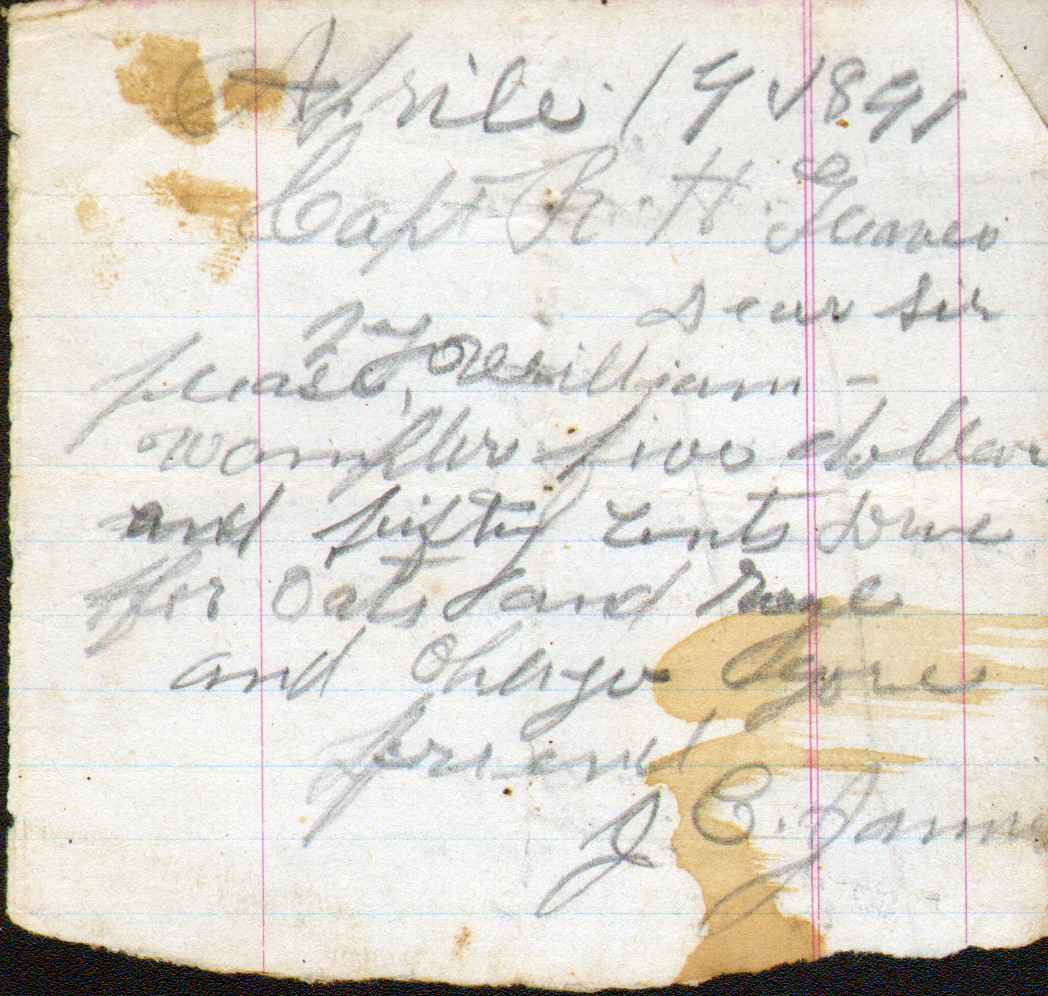 Aprile 19 1891
Capt R. H.
Dear Sir
pay
please William -
wampler five dollars
and fifty cents Due
ffor Oats and Rye
and Charge yore
friend
J. C.